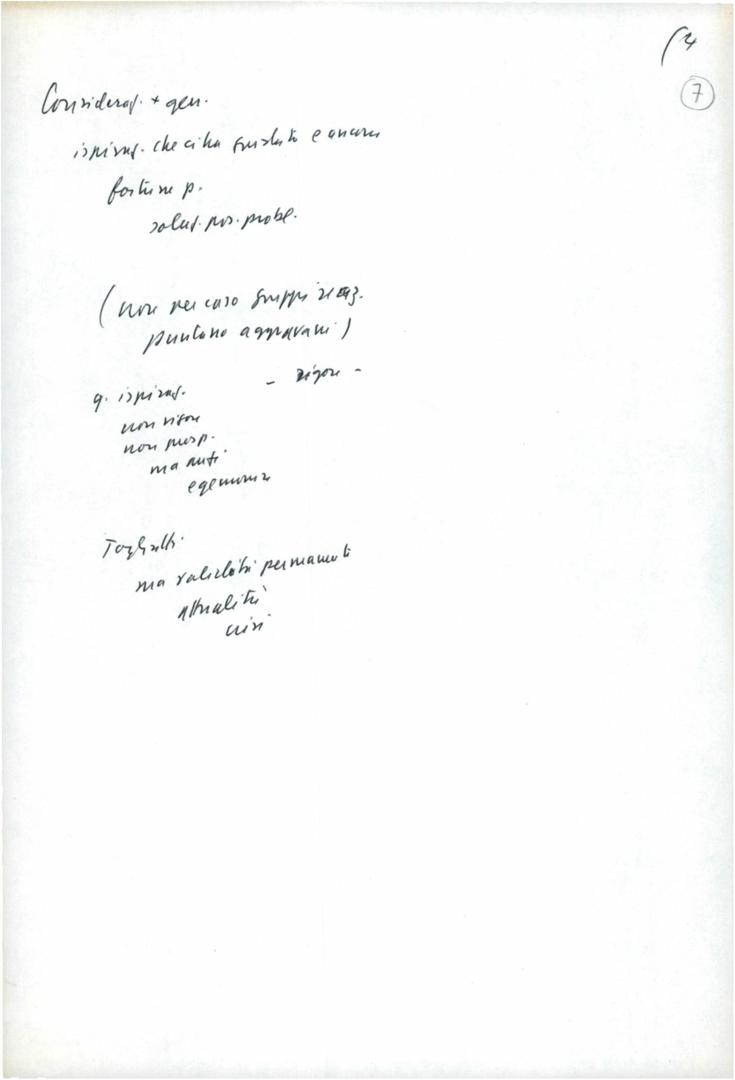 4
7
Consideraz. + gen.
ispiraz. che ci ha guidato e ancora
fortune p.
soluz. pos. probl.
(non per caso gruppi reaz.
puntano aggravarsi)
q. ispiraz. - rigore -
non
non
ma
egemonia
Togliatti
ma validità permanente
attualità
crisi